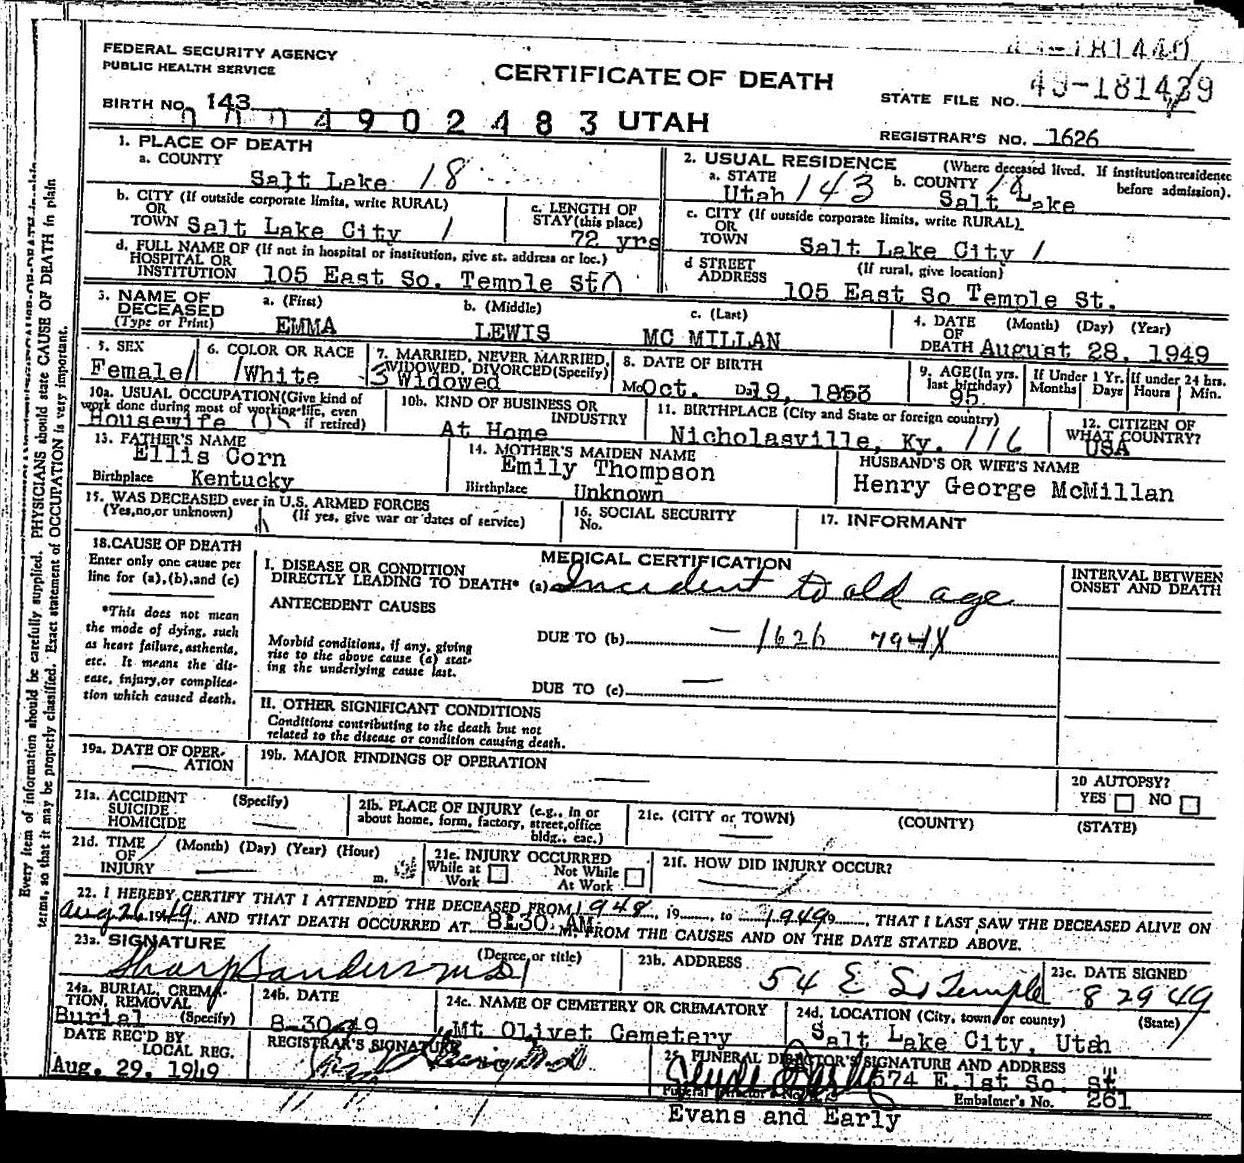 49-181440
FEDERAL SECURITY AGENCY
PUBLIC HEALTH SERVICE
CERTIFICATE OF DEATH
STATE FILE NO. 49-181439
BIRTH NO. 143
0004902483 UTAH
REGISTRAR'S NO. 1626
1. PLACE OF DEATH
a. COUNTY
Salt Lake 18
2. USUAL RESIDENCE (Where deceased lived. If institution:residence before admission).
a. STATE Utah 143 b. COUNTY Salt Lake
b. CITY (If outside corporate limits, write RURAL)
OR
TOWN Salt Lake City 1
c. LENGTH OF
STAY (this place)
72 yrs
c. CITY (If outside corporate limits, write RURAL)
OR
TOWN Salt Lake City 1
d. FULL NAME OF (If not in hospital or institution, give st. address or loc.)
HOSPITAL OR
INSTITUTION 105 East So. Temple St
d STREET (If rural, give location)
ADDRESS 105 East So Temple St.
3. NAME OF DECEASED (Type or Print)
a. (First) EMMA
b. (Middle) LEWIS
c. (Last) MC MILLAN
4. DATE OF DEATH (Month) (Day) (Year)
August 28, 1949
5. SEX
Female 1
6. COLOR OR RACE
1 White
7. MARRIED, NEVER MARRIED, WIDOWED, DIVORCED (Specify)
3 Widowed
8. DATE OF BIRTH
Mo Oct. D 19, 1853
9. AGE (In yrs. last birthday)
95
If Under 1 Yr. Months Days
If under 24 hrs. Hours Min.
10a. USUAL OCCUPATION (Give kind of work done during most of working life, even if retired)
Housewife
10b. KIND OF BUSINESS OR INDUSTRY
At Home
11. BIRTHPLACE (City and State or foreign country)
Nicholasville, Ky. 116
12. CITIZEN OF WHAT COUNTRY?
USA
13. FATHER'S NAME
Ellis Corn
Birthplace Kentucky
14. MOTHER'S MAIDEN NAME
Emily Thompson
Birthplace Unknown
HUSBAND'S OR WIFE'S NAME
Henry George McMillan
15. WAS DECEASED ever in U.S. ARMED FORCES
(Yes,no,or unknown) (If yes, give war or dates of service)
16. SOCIAL SECURITY
No.
17. INFORMANT
18. CAUSE OF DEATH
Enter only one cause per line for (a),(b),and (c)
*This does not mean the mode of dying, such as heart failure, asthenia, etc. It means the disease, injury, or complication which caused death.
MEDICAL CERTIFICATION
I. DISEASE OR CONDITION
DIRECTLY LEADING TO DEATH* (a) Incident to old age
INTERVAL BETWEEN ONSET AND DEATH
ANTECEDENT CAUSES
Morbid conditions, if any, giving rise to the above cause (a) stating the underlying cause last.
DUE TO (b) — 1626 794X
DUE TO (c) —
II. OTHER SIGNIFICANT CONDITIONS
Conditions contributing to the death but not related to the disease or condition causing death.
19a. DATE OF OPERATION —
19b. MAJOR FINDINGS OF OPERATION —
20 AUTOPSY?
YES NO
21a. ACCIDENT SUICIDE HOMICIDE (Specify) —
21b. PLACE OF INJURY (e.g., in or about home, form, factory, street, office bldg., eac.) —
21c. (CITY or TOWN) (COUNTY) (STATE) —
21d. TIME OF INJURY (Month) (Day) (Year) (Hour) m. —
21e. INJURY OCCURRED
While at Work Not While At Work
21f. HOW DID INJURY OCCUR? —
22. I HEREBY CERTIFY THAT I ATTENDED THE DECEASED FROM 1948, 19, to 1949, THAT I LAST SAW THE DECEASED ALIVE ON
Aug 26 1949, AND THAT DEATH OCCURRED AT 8:30 AM M. FROM THE CAUSES AND ON THE DATE STATED ABOVE.
23a. SIGNATURE (Degree or title)
Sharp Sanders MD
23b. ADDRESS
54 E So Temple
23c. DATE SIGNED
8 29 49
24a. BURIAL, CREMATION, REMOVAL (Specify)
Burial
24b. DATE
8-30-49
24c. NAME OF CEMETERY OR CREMATORY
Mt Olivet Cemetery
24d. LOCATION (City, town or county) (State)
Salt Lake City, Utah
DATE REC'D BY LOCAL REG.
Aug. 29, 1949
REGISTRAR'S SIGNATURE
25. FUNERAL DIRECTOR'S SIGNATURE AND ADDRESS
574 E. 1st So. St
Embalmer's No. 261
Evans and Early
Every item of information should be carefully supplied. PHYSICIANS should state CAUSE OF DEATH in plain
terms, so that it may be properly classified. Exact statement of OCCUPATION is very important.